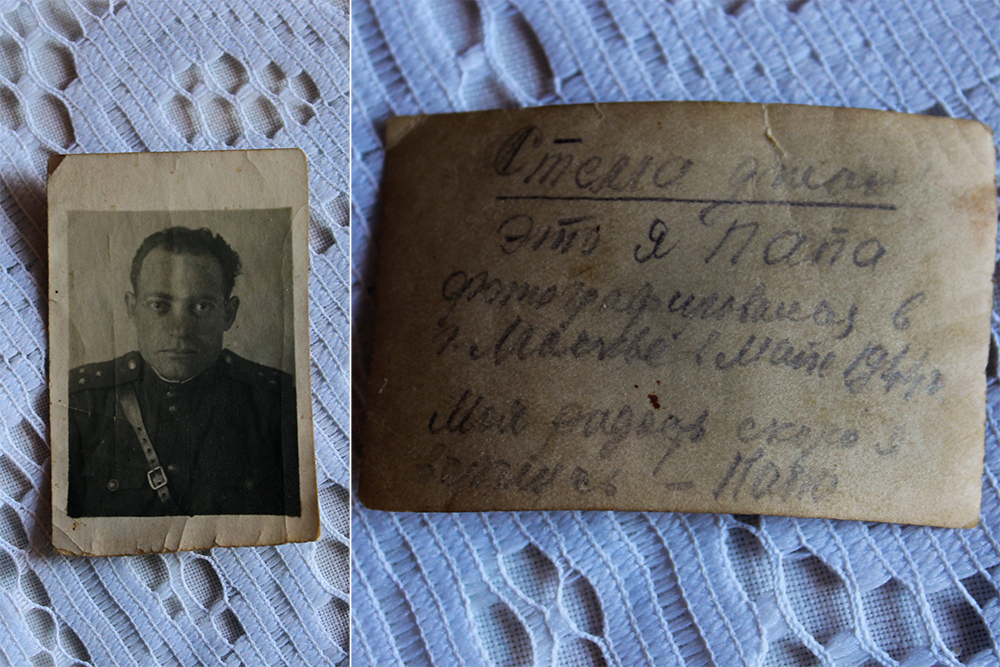 Стелла джан
Это я Папа
фотографировался в
г. Москве 2 мая 1944г
Моя радость скоро я
вернусь - Папа